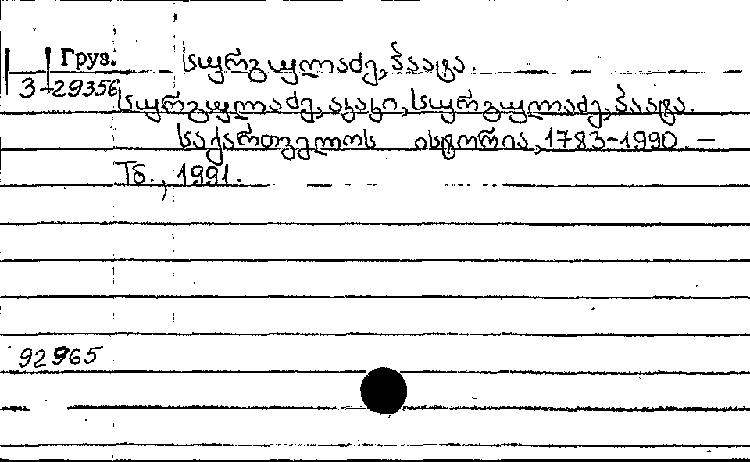 Груз.
სურგულაძე, პაატა.
3-29356
სურგულაძე, აკაკი, სურგულაძე, პაატა.
საქართველოს ისტორია, 1783-1990. —
Тб., 1991.
92965